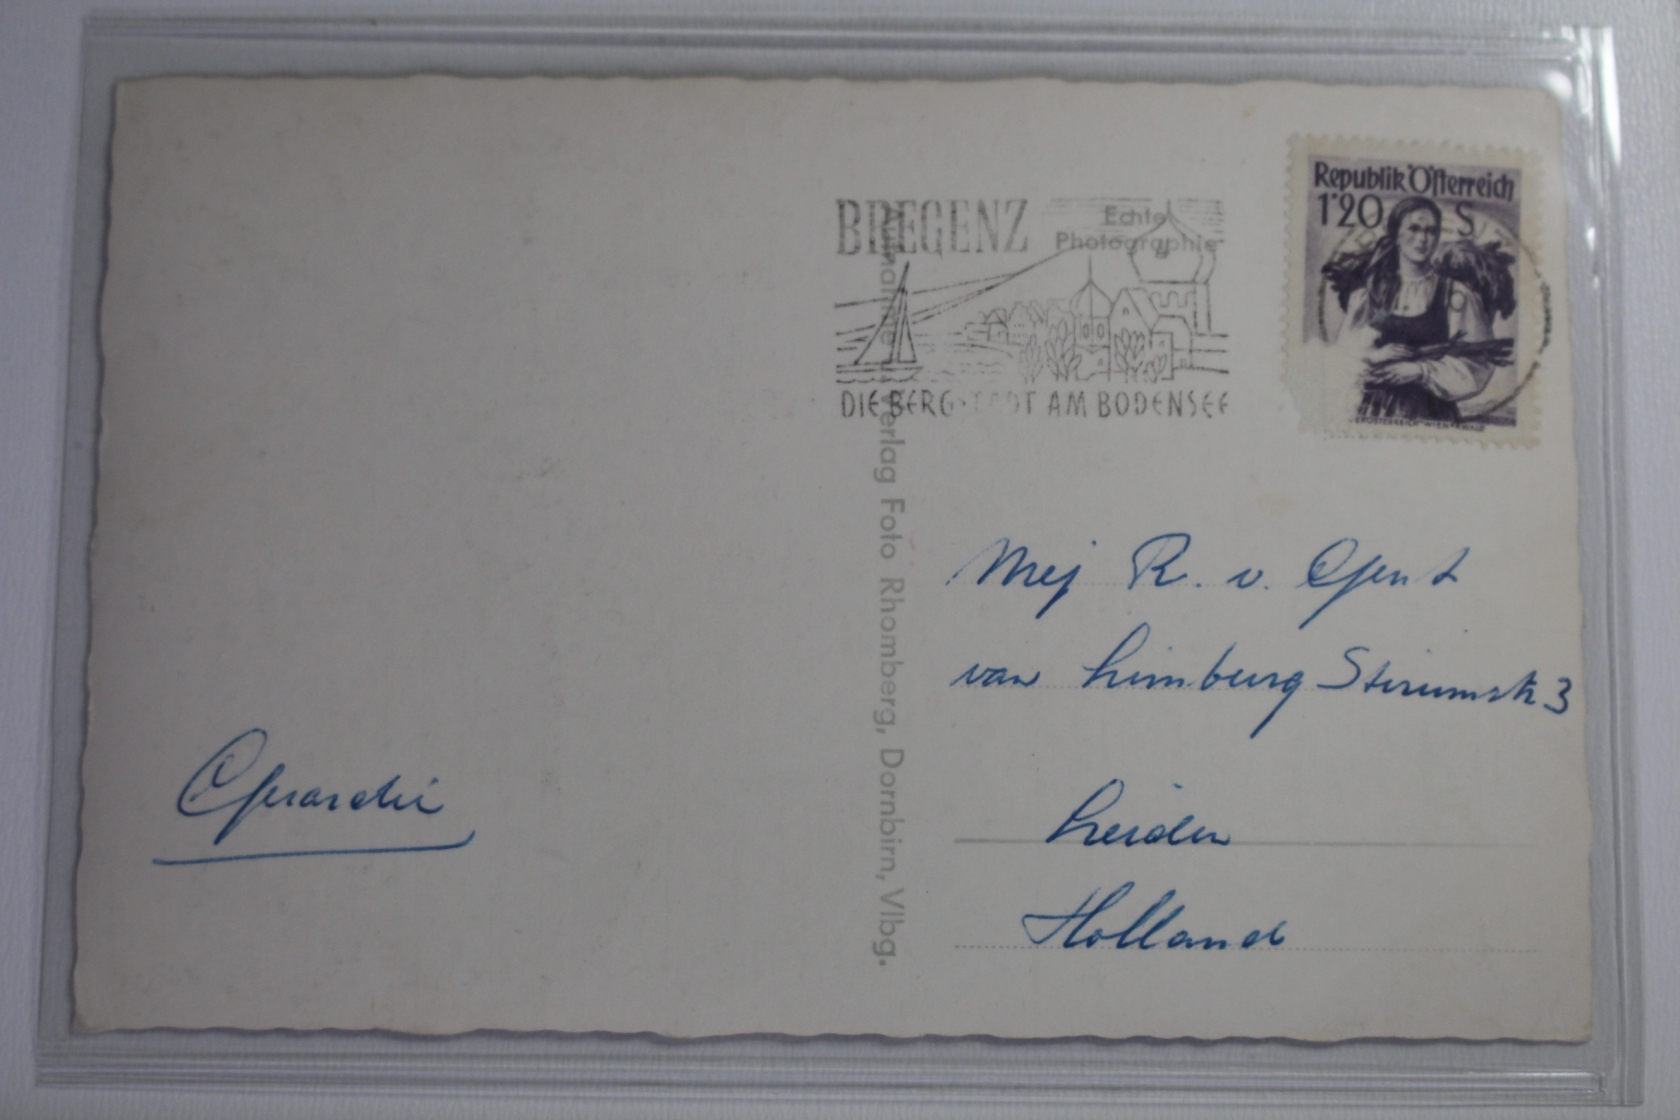 BREGENZ
Echte
Photographie
DIE BERG-STADT AM BODENSEE
Republik Österreich
1'20 S
Aufnahme u. Verlag Foto Rhomberg, Dornbirn, Vlbg.
Mej R. v. Gent
van Limburg Stirumstr 3
Leiden
Holland
Gerardie